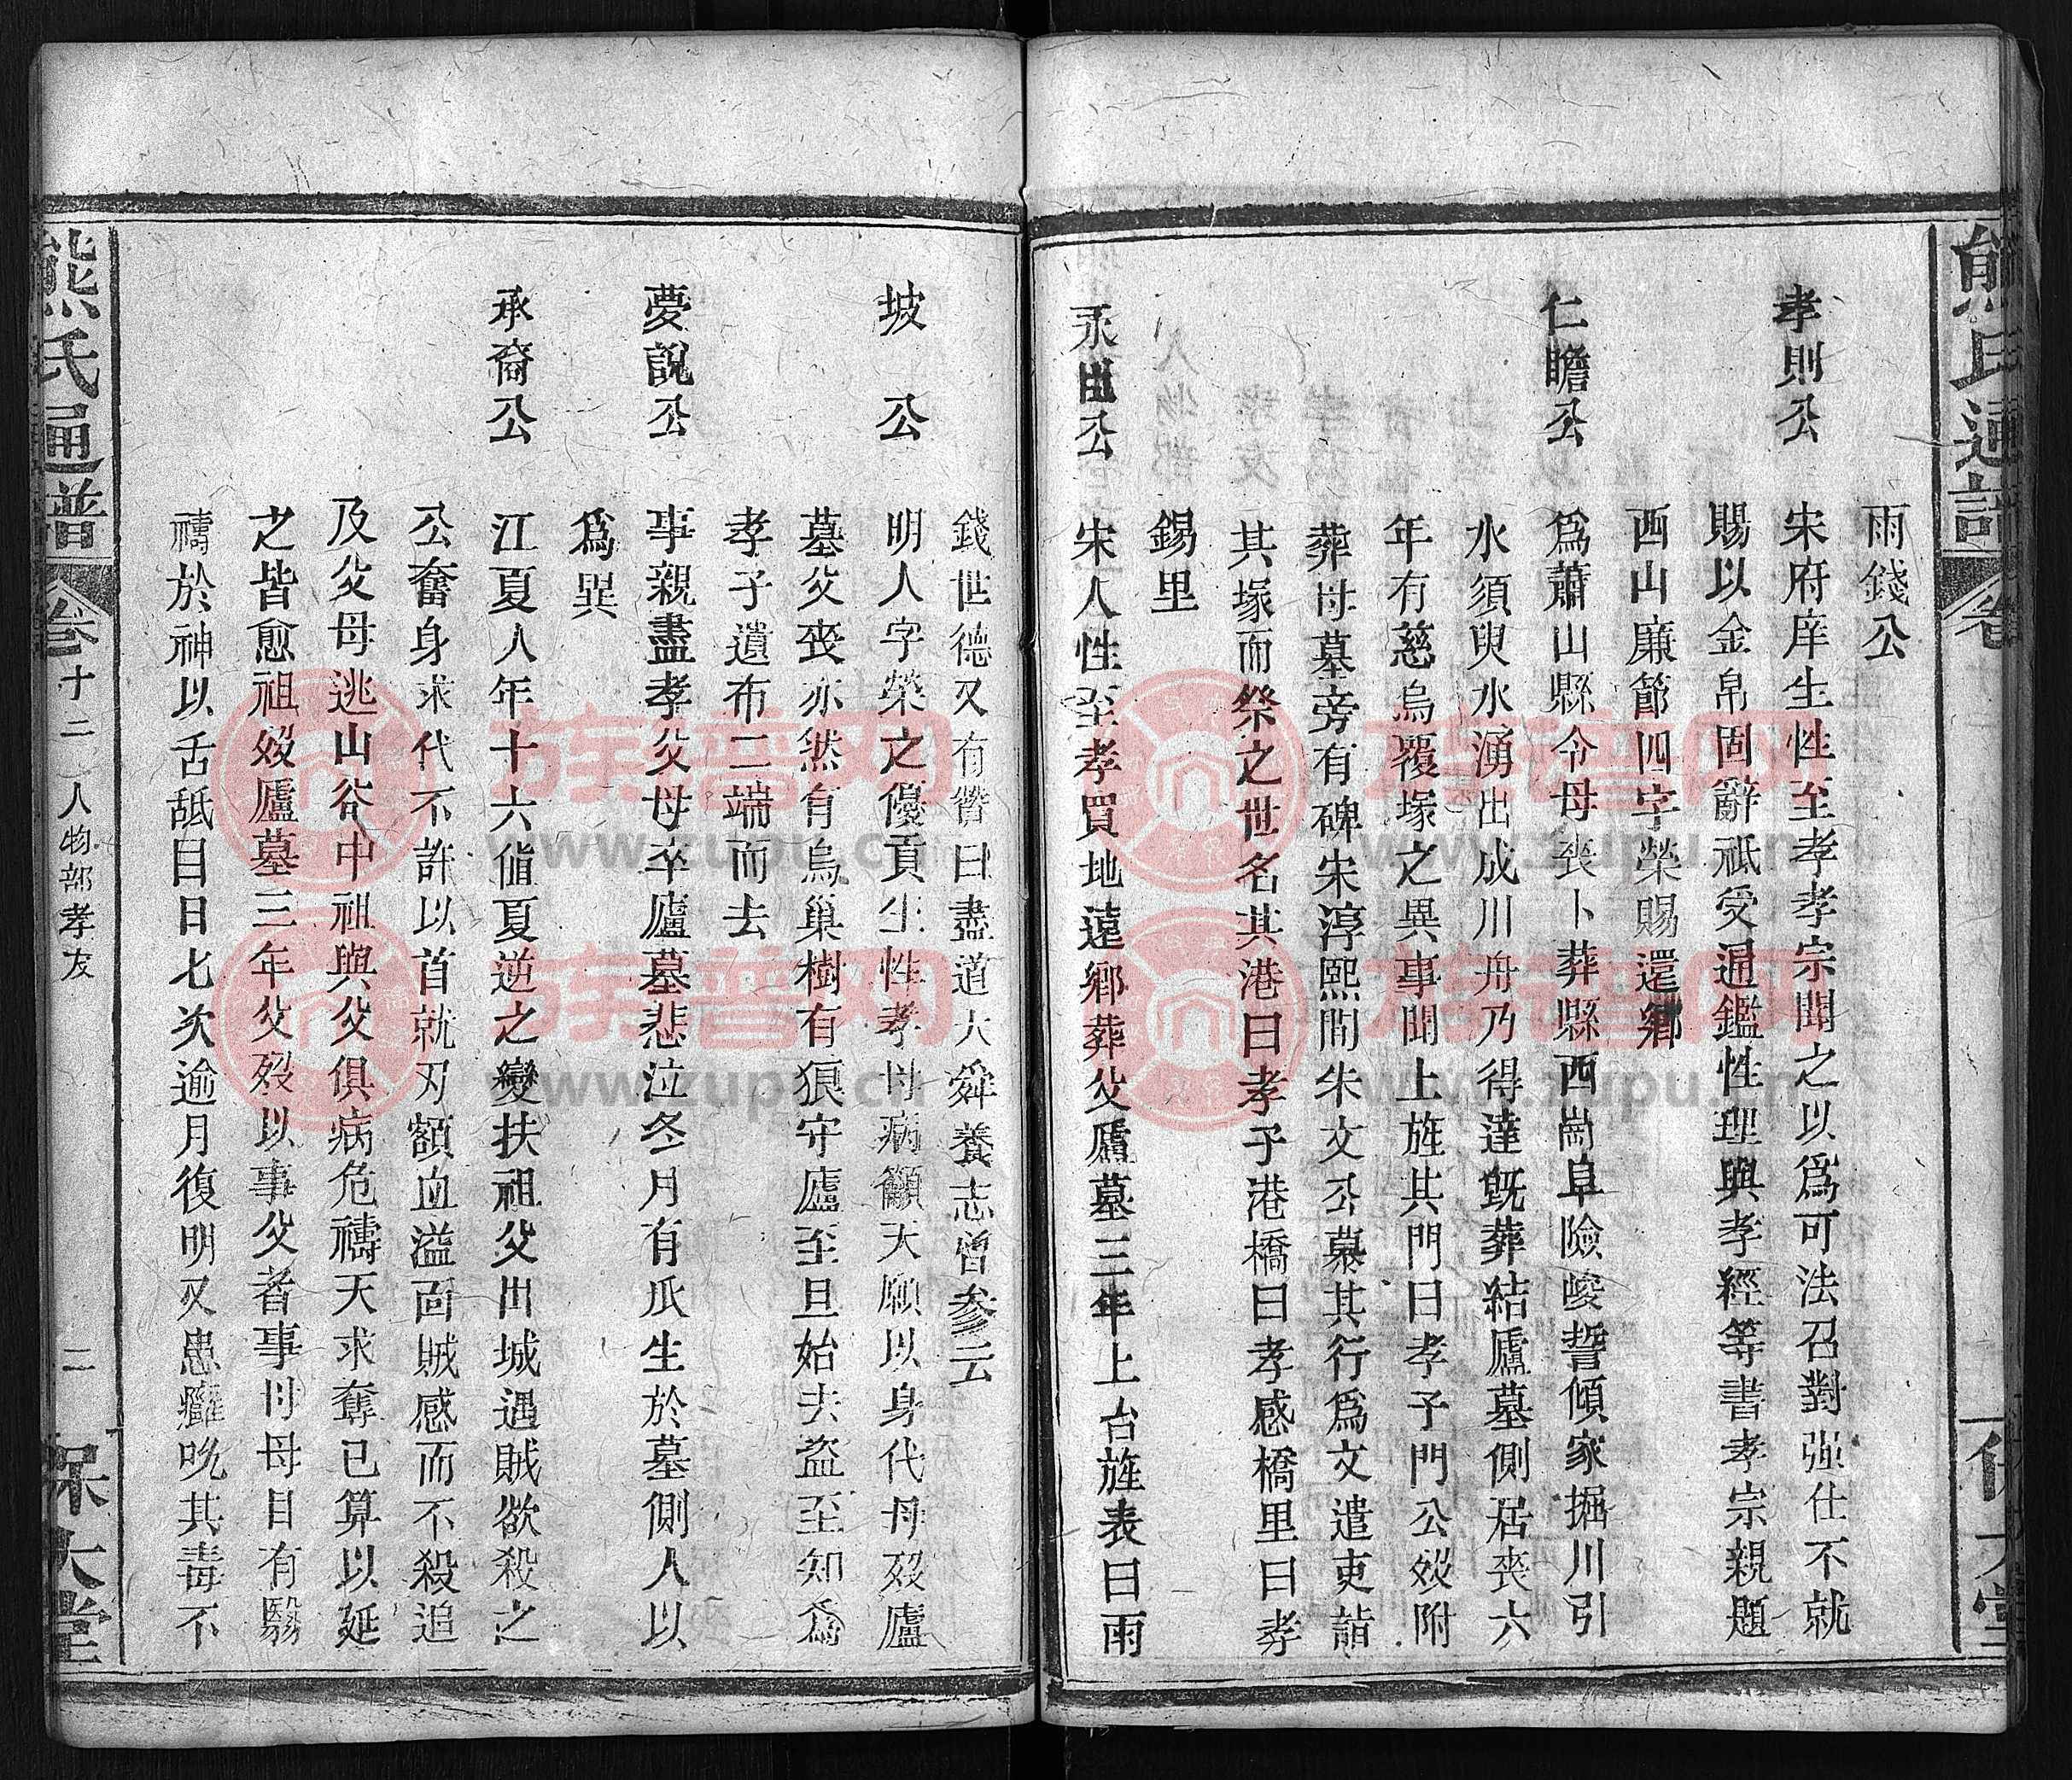 雨錢公
孝則公 宋府庠生性至孝孝宗聞之以爲可法召對强仕不就
賜以金帛固辭祗受通鑑性理與孝經等書孝宗親題
西山廉節四字榮賜還鄉
仁瞻公 爲蕭山縣令母喪卜葬縣西崗阜險峻誓傾家掘川引
水須臾水湧出成川舟乃得達旣葬結廬墓側居喪六
年有慈烏覆塚之異事聞上旌其門曰孝子門公歿附
葬母墓旁有碑宋淳熙間朱文公慕其行爲文遣吏詣
其塚而祭之世名其港曰孝子港橋曰孝感橋里曰孝
錫里
永昌公 宋人性至孝買地遠鄉葬父廬墓三年上台旌表曰雨
錢世德又有贊曰盡道大舜養志曾參云
坡公 明人字榮之優貢生性孝母病籲天願以身代母歿廬
墓父喪亦然有烏巢樹有狼守廬至旦始去盜至知爲
孝子遺布二端而去
夢說公 事親盡孝父母卒廬墓悲泣冬月有瓜生於墓側人以
爲異
承裔公 江夏人年十六値夏逆之變扶祖父出城遇賊欲殺之
公奮身求代不許以首就刃額血溢面賊感而不殺追
及父母逃山谷中祖與父俱病危禱天求奪已算以延
之皆愈祖歿廬墓三年父歿以事父者事母母目有翳
禱於神以舌舐目日七次逾月復明又患癰吮其毒不
熊氏通譜 卷十二 人物部孝友 二 保大堂
熊氏通譜 卷
大堂
族普网
www.zupu.cn
族普网
www.zupu.cn
族普网
www.zupu.cn
族普网
www.zupu.cn